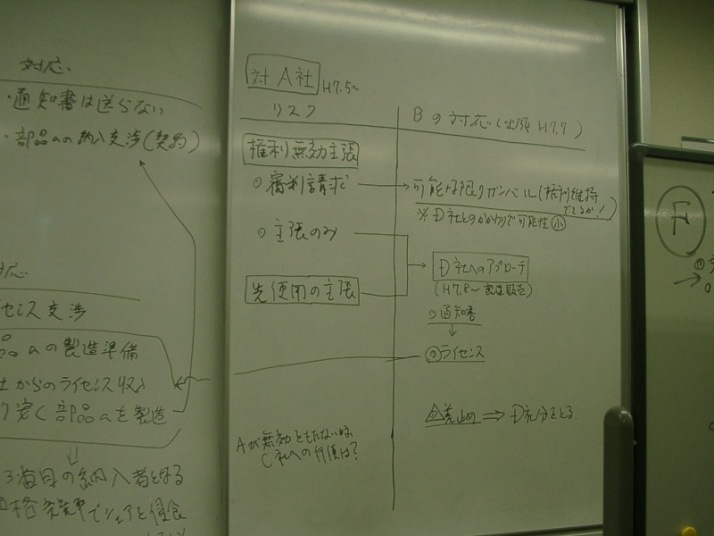 対応
・通知書は送らない
・部品aの納入交渉(契約)
対応
センス交渉
部品aの製造準備
社からのライセンス収入
り安く部品aを製造
⇓
3番目の納入者となる
対A社 H7.5~
リスク
権利無効主張
○審判請求
○主張のみ
先使用の主張
Aが無効ともたない時
C社への
Bの対応(出願 H7.7)
可能な限りガンバル(権利維持
できるか!
※D社とのかかわりで可能性小
D社へのアプローチ
(H7.8~製造販売)
○通知書
↓
◎ライセンス
差止め⇒D社分をとる
F